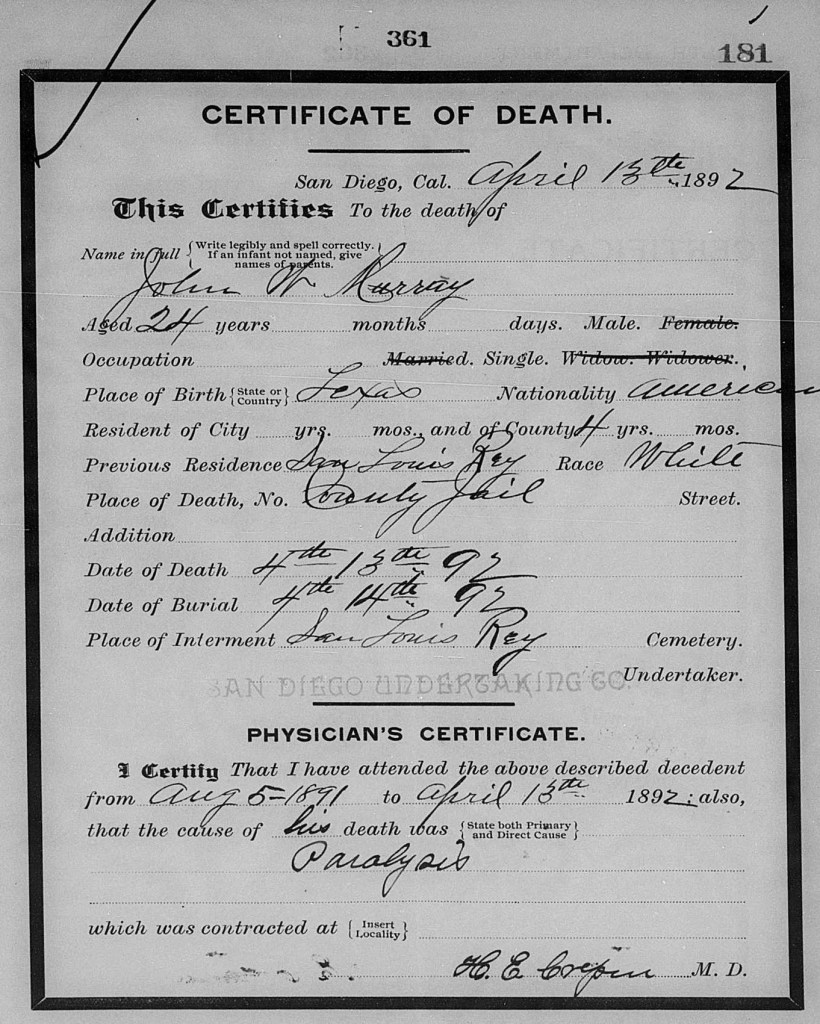 361
181
CERTIFICATE OF DEATH.
San Diego, Cal. April 13th 1892
This Certifies To the death of
Name in full {Write legibly and spell correctly. If an infant not named, give names of parents.}
John W Murray
Aged 24 years months days. Male. Female.
Occupation Married. Single. Widow. Widower.
Place of Birth {State or Country} Texas Nationality American
Resident of City yrs. mos., and of County 4 yrs. mos.
Previous Residence San Louis Rey Race White
Place of Death, No. County Jail Street.
Addition
Date of Death 4th 13th 92
Date of Burial 4th 14th 92
Place of Interment San Louis Rey Cemetery.
SAN DIEGO UNDERTAKING CO. Undertaker.
PHYSICIAN'S CERTIFICATE.
I Certify That I have attended the above described decedent
from Aug 5-1891 to April 13th 1892; also,
that the cause of his death was {State both Primary and Direct Cause}
Paralysis
which was contracted at {Insert Locality}
H. E. Crepin M. D.